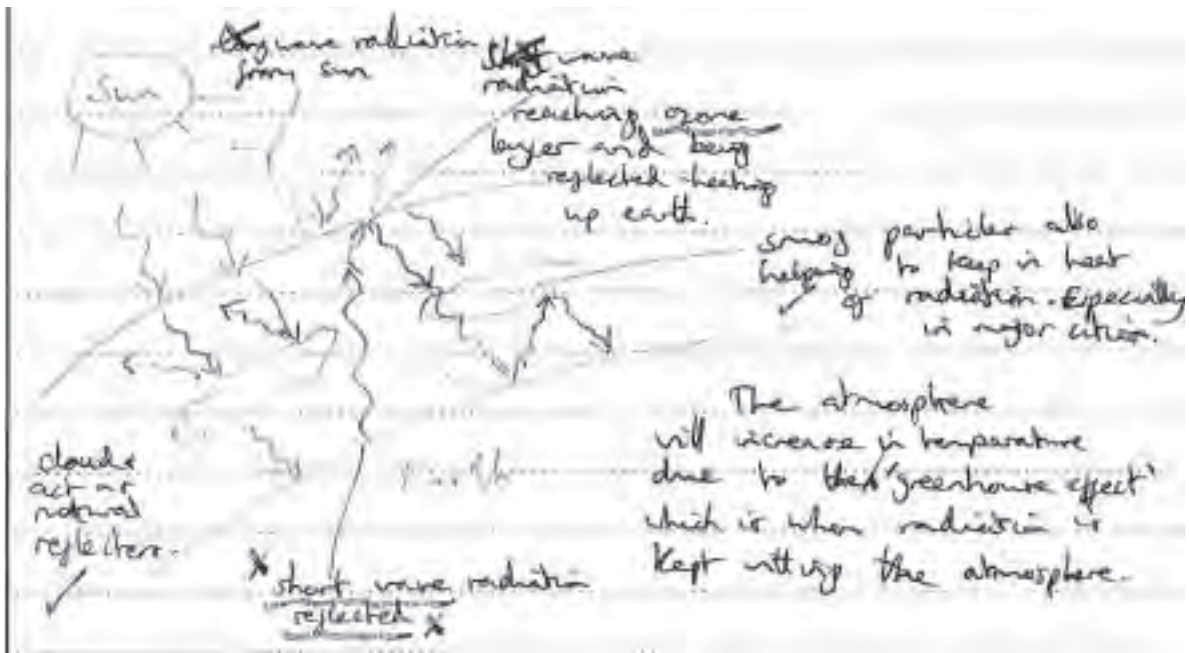 Sun
long wave radiation
from sun
short wave
radiation
reaching ozone
layer and being
reflected heating
up earth.
smog particles also
helping to keep in heat
of radiation. Especially
in major cities.
The atmosphere
will increase in temparature
due to the 'greenhouse effect'
which is when radiation is
kept within the atmosphere.
clouds
act as
natural
reflecters.
short wave radiation
reflected